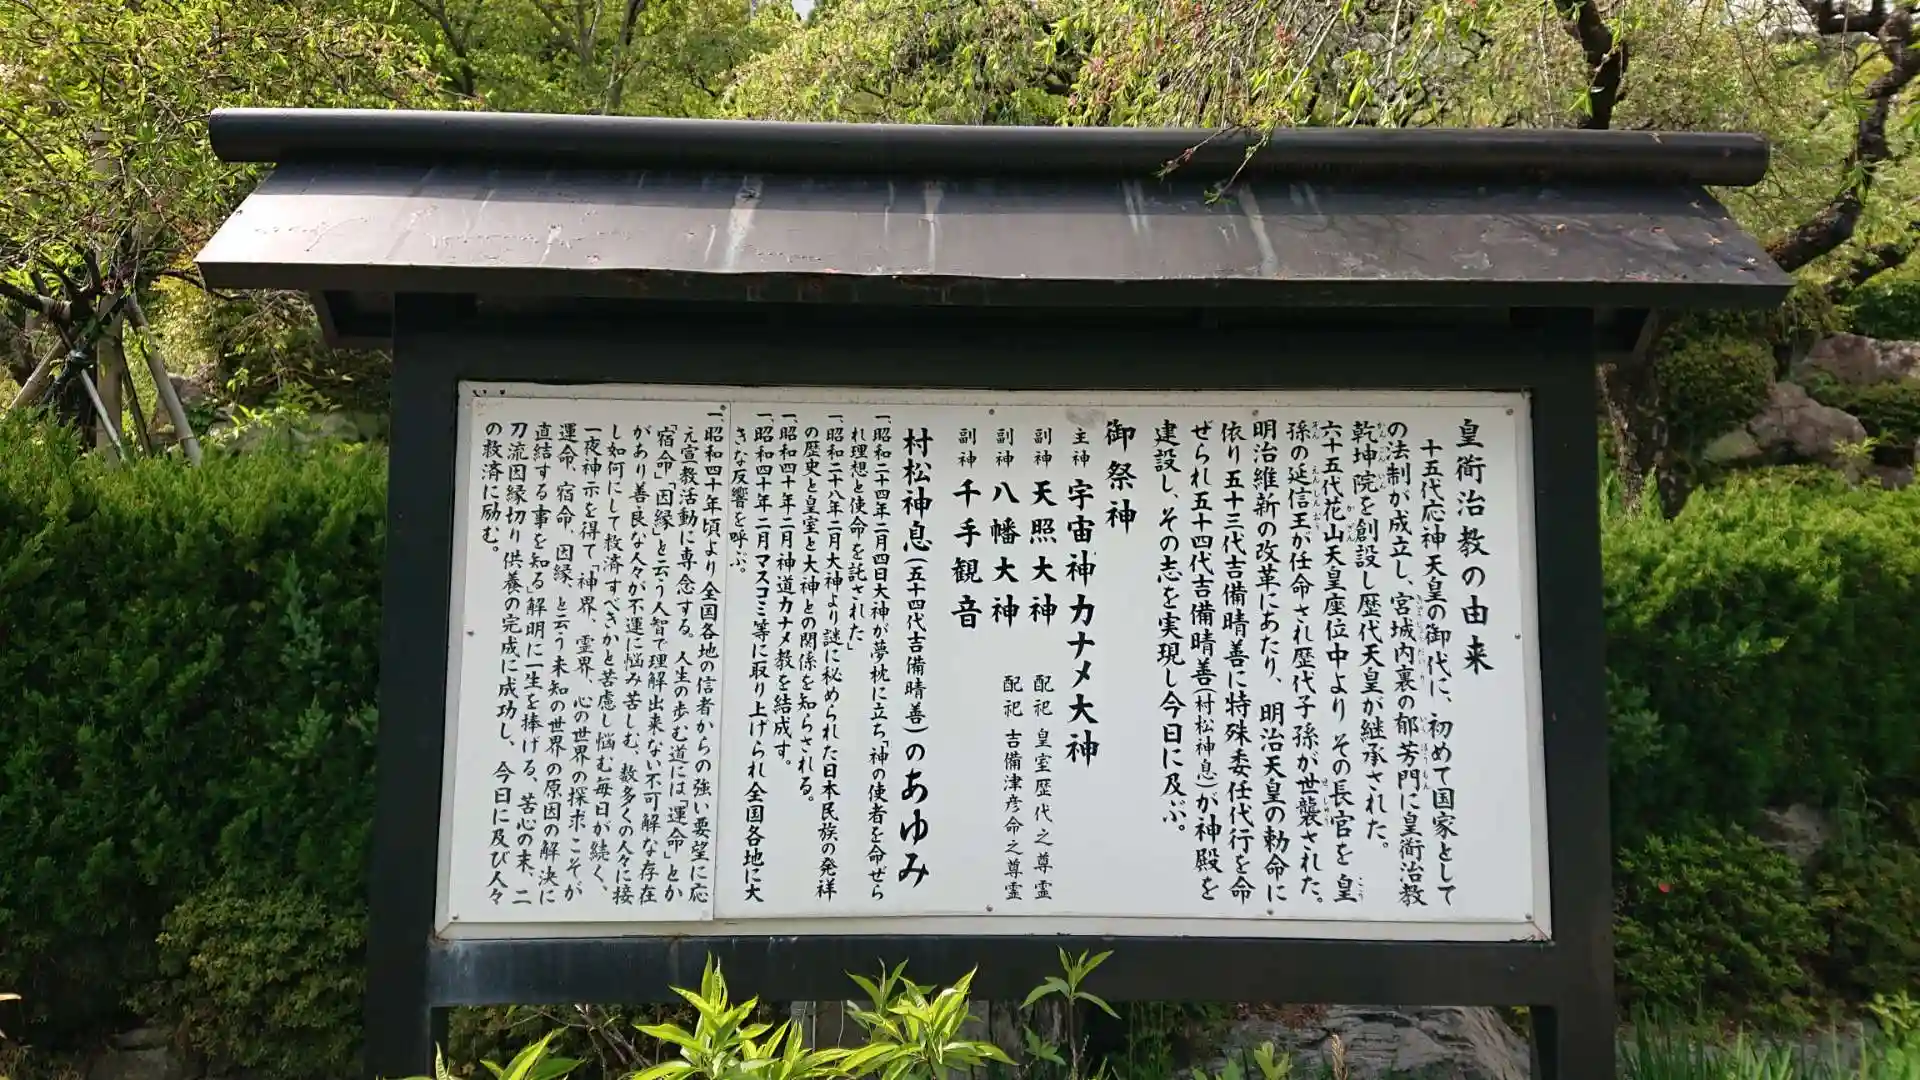 皇衙治教の由来
十五代応神天皇の御代に、初めて国家として
の法制が成立し、宮城内裏の郁芳門に皇衙治教
乾坤院を創設し歴代天皇が継承された。
六十五代花山天皇座位中より その長官を 皇
孫の延信王が任命され歴代子孫が世襲された。
明治維新の改革にあたり、明治天皇の勅命に
依り五十三代吉備晴善に特殊委任代行を命
ぜられ五十四代吉備晴善(村松神息)が神殿を
建設し、その志を実現し今日に及ぶ。
御祭神
主神 宇宙神カナメ大神
副神 天照大神 配祀 皇室歴代之尊霊
副神 八幡大神 配祀 吉備津彦命之尊霊
副神 千手観音
村松神息(五十四代吉備晴善)のあゆみ
一、昭和二十四年二月四日大神が夢枕に立ち「神の使者を命ぜら
れ理想と使命を託された」
一、昭和二十八年二月大神より謎に秘められた日本民族の発祥
の歴史と皇室と大神との関係を知らされる。
一、昭和四十年二月神道カナメ教を結成す。
一、昭和四十年二月マスコミ等に取り上げられ全国各地に大
きな反響を呼ぶ。
一、昭和四十年頃より全国各地の信者からの強い要望に応
元宣教活動に専念する。人生の歩む道には「運命」とか
「宿命」「因縁」と云う人智で理解出来ない不可解な存在
があり善良な人々が不運に悩み苦しむ、数多くの人々に接
し如何にして救済すべきかと苦慮し悩む毎日が続く、
一夜神示を得て「神界、霊界、心の世界の探求こそが
運命、宿命、因縁、と云う未知の世界の原因の解決に
直結する事を知る」解明に一生を捧げる、苦心の末、二
刀流因縁切り供養の完成に成功し、今日に及び人々
の救済に励む。